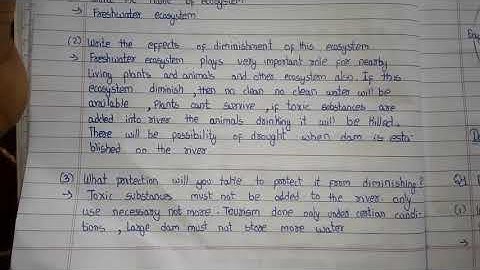 the name of ecosystem
→ Freshwater ecosystem
(2) Write the effects of diminishment of this ecosystem
→ Freshwater ecosystem plays very important role for nearby
living plants and animals and other ecosystem also. If this
ecosystem diminish, then no clean no clean water will be
available, Plants cant survive, if toxic substances are
added into river the animals drinking it will be killed.
There will be possibility of drought when dam is esta-
blished on the river
(3) What protection will you table to protect it from diminishing?
→ Toxic substances must not be added to the river only
use necessary not more. Tourism done only under certian condi-
tions, Large dam must not store more water